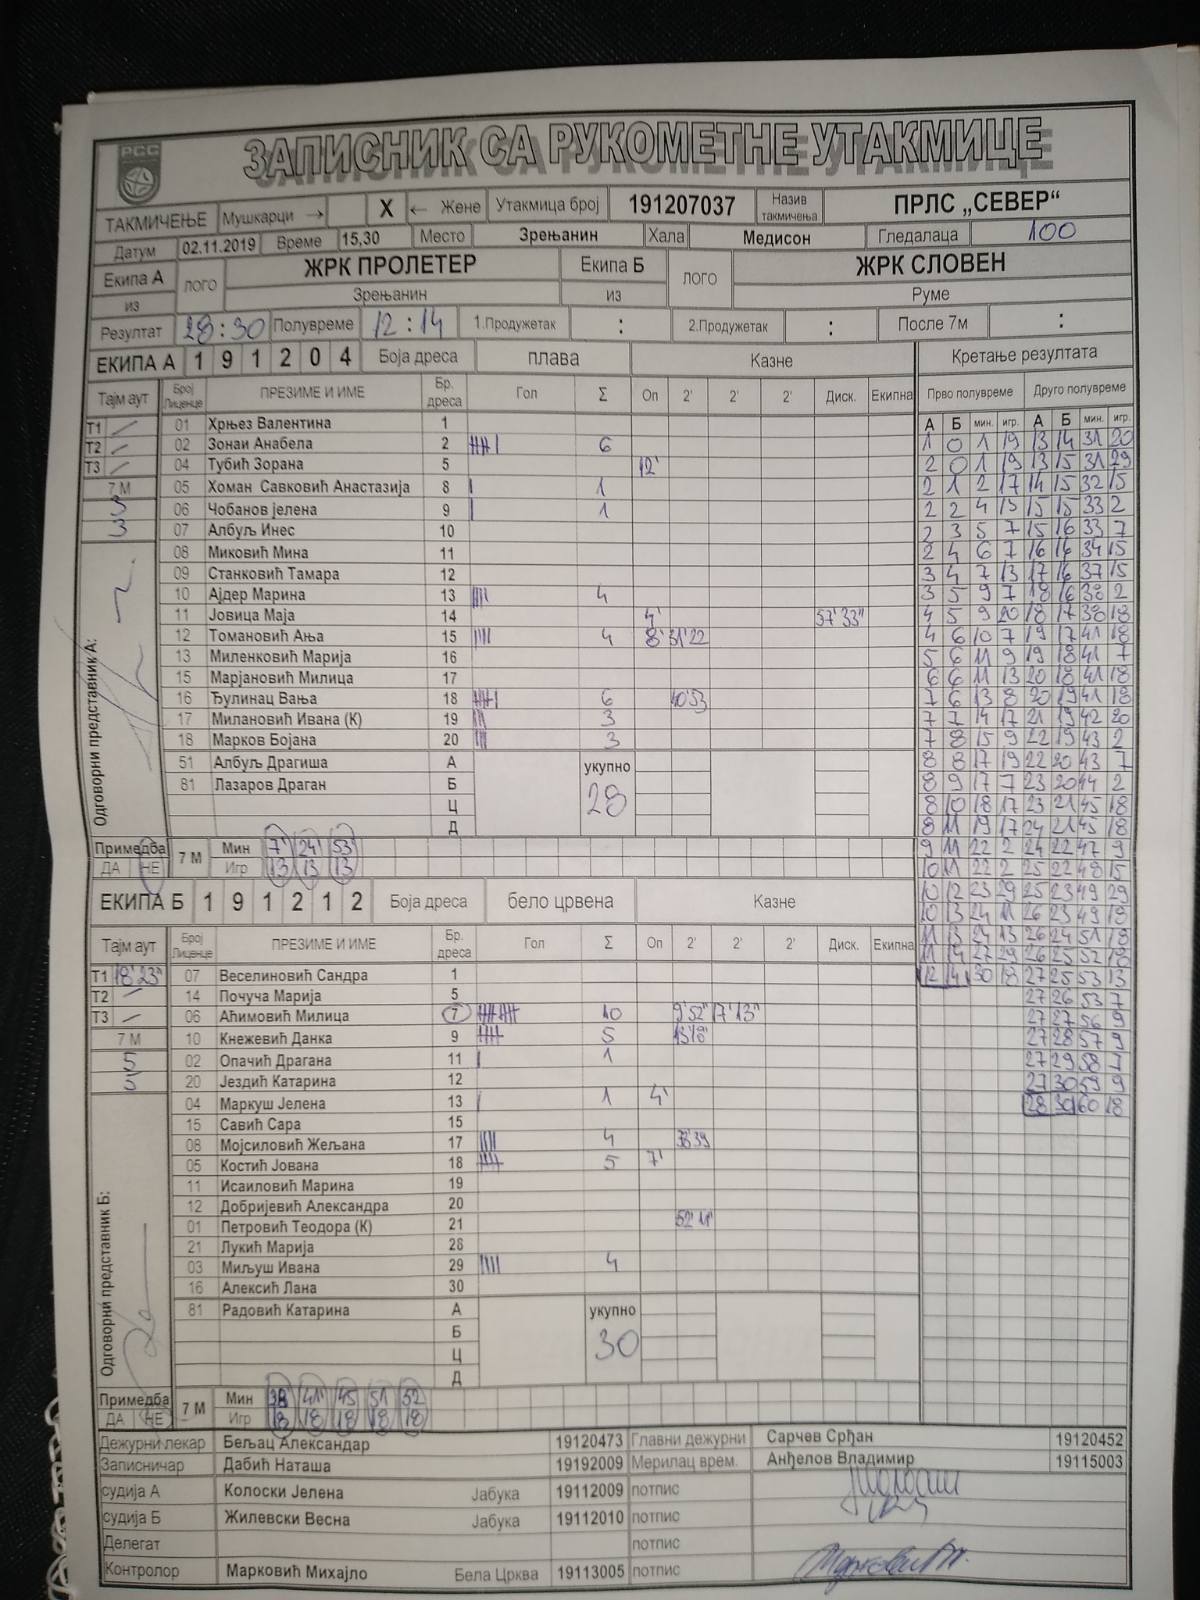 РСС
ЗАПИСНИК СА РУКОМЕТНЕ УТАКМИЦЕ
ТАКМИЧЕЊЕ Мушкарци → X ← Жене Утакмица број 191207037 Назив такмичења ПРЛС „СЕВЕР“
Датум 02.11.2019 Време 15,30 Место Зрењанин Хала Медисон Гледалаца 100
Екипа А лого ЖРК ПРОЛЕТЕР Екипа Б лого ЖРК СЛОВЕН
из Зрењанин из Руме
Резултат 28:30 Полувреме 12:14 1.Продужетак : 2.Продужетак : После 7м :
ЕКИПА А 1 9 1 2 0 4 Боја дреса плава Казне Кретање резултата
Тајм аут Број Лиценце ПРЕЗИМЕ И ИМЕ Бр. дреса Гол Σ Оп 2' 2' 2' Диск. Екипна Прво полувреме Друго полувреме
А Б мин. игр. А Б мин. игр.
Т1 01 Хрњез Валентина 1
Т2 02 Зонаи Анабела 2 6 1 0 1 19 13 14 31 20
Т3 04 Тубић Зорана 5 12' 2 0 1 19 13 15 31 29
7 М 05 Хоман Савковић Анастазија 8 1 2 1 2 17 14 15 32 15
3 06 Чобанов јелена 9 1 2 2 4 15 15 15 33 2
3 07 Албуљ Инес 10 2 3 5 7 15 16 33 7
08 Миковић Мина 11 2 4 6 7 16 16 34 15
09 Станковић Тамара 12 3 4 7 13 17 16 37 15
10 Ајдер Марина 13 4 3 5 9 7 18 16 38 2
11 Јовица Маја 14 4' 57'33" 4 5 9 20 18 17 38 18
12 Томановић Ања 15 4 8' 31'22 4 6 10 7 19 17 41 18
13 Миленковић Марија 16 5 6 11 9 19 18 41 7
15 Марјановић Милица 17 6 6 11 13 20 18 41 18
16 Ђулинац Вања 18 6 40'53 7 6 13 8 20 19 41 18
17 Милановић Ивана (К) 19 3 7 7 14 17 21 19 42 20
18 Марков Бојана 20 3 7 8 15 9 22 19 43 2
51 Албуљ Драгиша А укупно 8 8 17 19 22 20 43 7
81 Лазаров Драган Б 28 8 9 17 7 23 20 44 2
Ц 8 10 18 17 23 21 45 18
Д 8 11 19 17 24 21 45 18
Примедба 7 М Мин 7' 24' 53' 9 11 22 2 24 22 47 9
ДА НЕ Игр 13 13 13 10 11 22 2 25 22 48 15
ЕКИПА Б 1 9 1 2 1 2 Боја дреса бело црвена Казне 10 12 23 29 25 23 49 29
10 13 24 11 26 23 49 18
Тајм аут Број Лиценце ПРЕЗИМЕ И ИМЕ Бр. дреса Гол Σ Оп 2' 2' 2' Диск. Екипна 11 13 24 13 26 24 51 18
11 14 27 29 26 25 52 18
Т1 18'23" 07 Веселиновић Сандра 1 12 14 30 18 27 25 53 13
Т2 14 Почуча Марија 5 27 26 53 7
Т3 06 Аћимовић Милица 7 10 9'52" 17'13" 27 27 56 9
7 М 10 Кнежевић Данка 9 5 27 28 57 9
5 02 Опачић Драгана 11 1 27 29 58 7
5 20 Јездић Катарина 12 27 30 59 9
04 Маркуш Јелена 13 1 4' 28 30 60 18
15 Савић Сара 15
08 Мојсиловић Жељана 17 4
05 Костић Јована 18 5 7'
11 Исаиловић Марина 19
12 Добријевић Александра 20
01 Петровић Теодора (К) 21 52'11"
21 Лукић Марија 28
03 Миљуш Ивана 29 4
16 Алексић Лана 30
81 Радовић Катарина А укупно
Б 30
Ц
Д
Примедба 7 М Мин 38' 41' 45 51 52
ДА НЕ Игр 18 18 18 18 18
Одговорни представник А:
Одговорни представник Б:
Дежурни лекар Бељац Александар 19120473 Главни дежурни Сарчев Срђан 19120452
Записничар Дабић Наташа 19192009 Мерилац врем. Анђелов Владимир 19115003
судија А Колоски Јелена Јабука 19112009 потпис
судија Б Жилевски Весна Јабука 19112010 потпис
Делегат потпис
Контролор Марковић Михајло Бела Црква 19113005 потпис